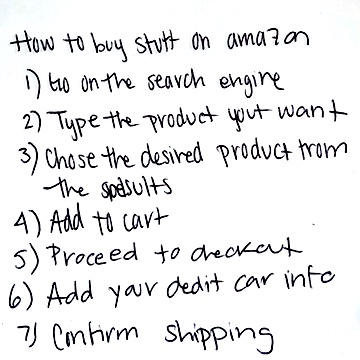 How to buy stuff on amazon
1) Go on the search engine
2) Type the product yout want
3) Chose the desired product from
the
4) Add to cart
5) Proceed to checkout
6) Add your dedit car info
7) Confirm shipping